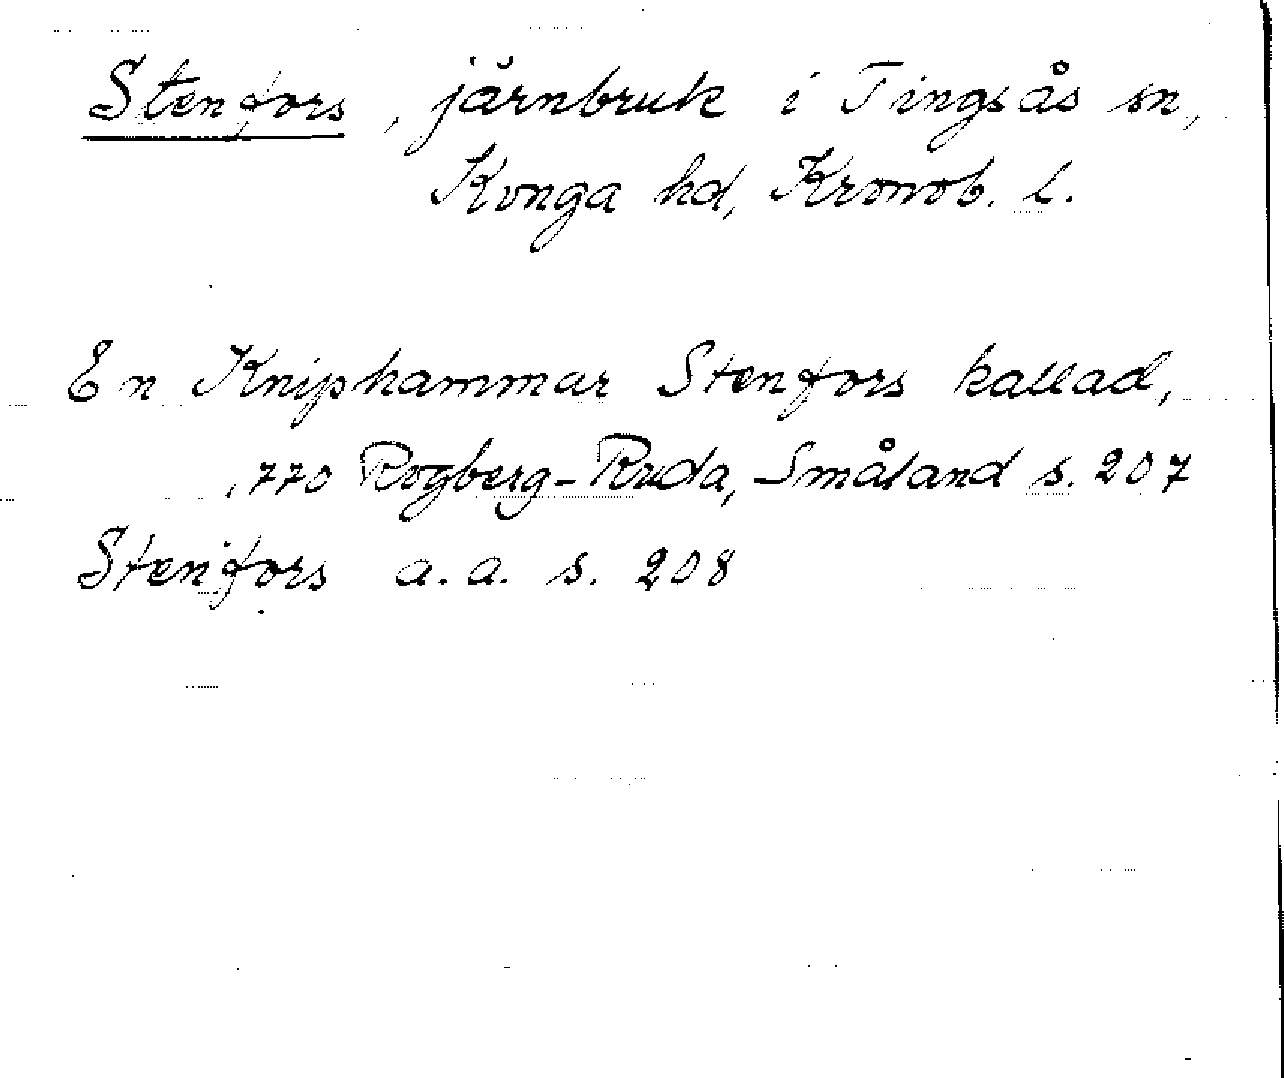 Stenfors, järnbruk i Tingsås sn,
Konga hd, Kronob. l.
En Kniphammar Stenfors kallad,
1770 Rogberg-Ruda, Småland s. 207
Stenfors a.a. s. 208